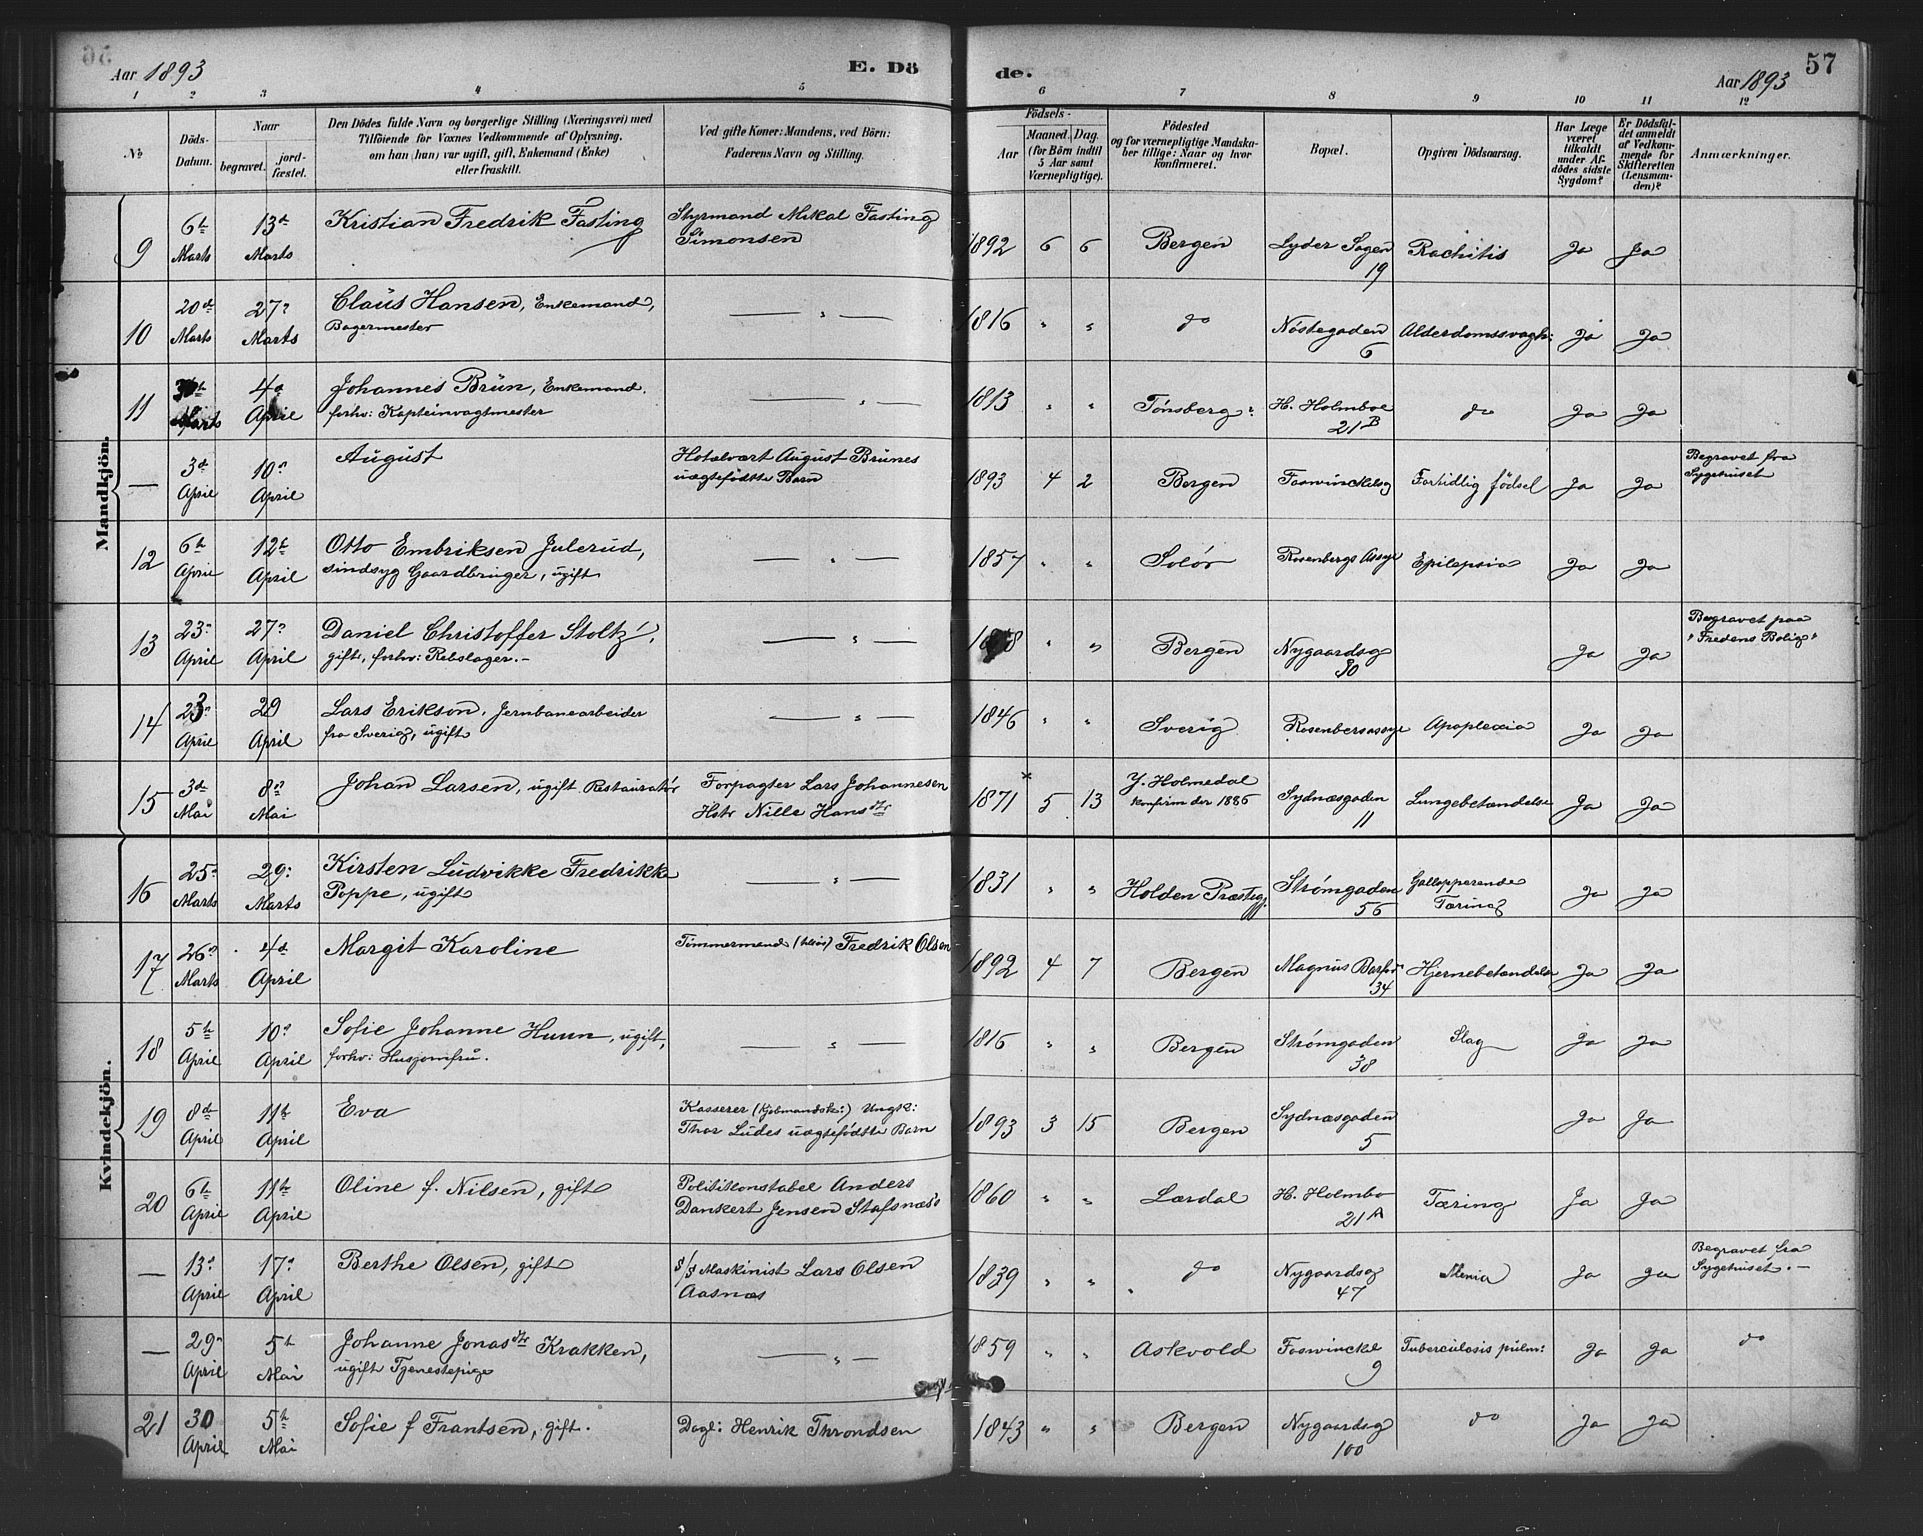 56
Aar 1893
E. Dö
de.
57
Aar 1893
1 2 3 4 5 6 7 8 9 10 11 12
No
Döds-
Datum.
Naar
begravet.
jord-
fæstet.
Den Dödes fulde Navn og borgerlige Stilling (Næringsvei) med
Tilföiende for Voxnes Vedkommende af Oplysning,
om han (hun) var ugift, gift, Enkemand (Enke)
eller fraskilt.
Ved gifte Koner: Mandens, ved Börn:
Faderens Navn og Stilling.
Födsels-
Aar
Maaned. Dag.
(for Börn indtil
5 Aar samt
Værnepligtige).
Födested
og for værnepligtige Mandska-
ber tillige: Naar og hvor
konfirmeret.
Bopæl.
Opgiven Dödsaarsag.
Har Læge
været
tilkaldt
under Af-
dödes sidste
Sygdom?
Er Dödsfal-
det anmeldt
af Vedkom-
mende for
Skifteretten
(Lensman-
den)?
Anmærkninger.
Mandkjön.
9
6te
Marts
13de
Marts
Kristian Fredrik Fasting
Styrmand Mikal Fasting
Simonsen
1892 6 6 Bergen
Lyder Sagen
19
Rachitis Ja Ja
10
20de
Marts
27?
Marts
Claus Hansen, Enkemand,
Bagermester
— „ —
1816 „ „ do
Nöstegaden
6
Alderdomssvagh: Ja Ja
11
Marts
4de
April
Johannes Brün, Enkemand.
forhv: Kapteinvagtmester
— „ —
1813 „ „ Tønsberg:
H. Holmboe
21B
do Ja Ja
—
3de
April
10?
April
August
Hotelvært August Brünes
uægtefødte Barn
1893 4 2 Bergen
Foswinckelsg
Fortidlig födsel Ja Ja
Begravet fra
Sygehuset
12
6te
April
12te
April
Otto Embriksen Julerud,
sindsyg Gaardbruger, ugift
— „ —
1857 „ „ Solør
Rosenbergs Assyl
Epilepsia Ja Ja
13
23?
April
27?
April
Daniel Christoffer Stoltz,
gift, forhv: Rebslager.-
— „ —
„ „ Bergen
Nygaardsg
30
Ja Ja
Begravet paa
"Fredens Bolig"
14
23?
April
29
April
Lars Erikson, Jernbanearbeider
fra Sverig, ugift
— „ —
1846 „ „ Sverig
Rosenbersassyl
Apoplexia Ja Ja
15
3de
Mai
8?
Mai
Johan Larsen, ugift Restauratør
Forpagter Lars Johannesen
Hstr Nille Hansdtr
1871 * 5 13
Y. Holmedal
konfirm der 1886
Sydnæsgaden
11
Lungebetændelse Ja Ja
Kvindekjön.
16
25?
Marts
29:
Marts
Kirsten Ludvikke Fredrikke
Poppe, ugift
— „ —
1831 „ „ Holden Præstegj.
Strømgaden
56
Gallopperende
Tæring
Ja Ja
17
26?
Marts
4de
April
Margit Karoline
Tömmermand Fredrik Olsen
1892 4 7 Bergen
Magnus Barfod
34
Hjernebetændelse Ja Ja
18
5te
April
10?
April
Sofie Johanne Huun, ugift,
forhv: Husjomfru.
— „ —
1816 „ „ Bergen
Strømgaden
38
Slag Ja Ja
19
8de
April
11te
April
Eva
Kasserer (Kjøbmandsk:) Ungk:
Thor Ludes uægtefødte Barn
1893 3 15 Bergen
Sydnæsgaden
5
Ja Ja
20
6te
April
11te
April
Oline f. Nilsen, gift
Politikonstabel Anders
Dankert Jensen Stafsnæs's
1860 „ „ Lærdal
H. Holmbo
21A
Tæring Ja Ja
—
13?
April
17?
April
Berthe Olsen, gift
S/S Maskinist Lars Olsen
Aasnæs
1839 „ „ do
Nygaardsg
47
Ja Ja
Begravet fra
Sygehuset.-
—
29?
April
5te
Mai
Johanne Jonasdtr Krakken,
ugift Tjenestepige
— „ —
1859 „ „ Askvold
Foswinckl
9
Tuberculosis pulm: Ja Ja do
21
30
April
5te
Mai
Sofie f Frantsen, gift.
Dagl: Henrik Throndsen
1843 „ „ Bergen
Nygaardsg
100
do Ja Ja